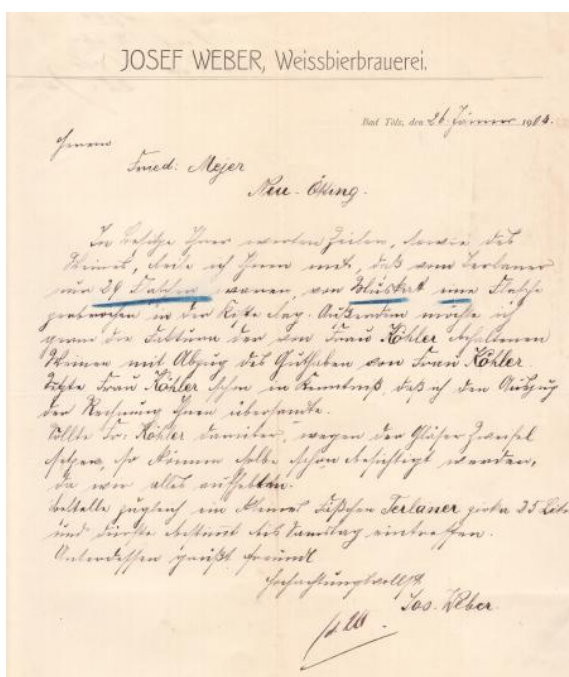 JOSEF WEBER, Weissbierbrauerei.
Bad Tölz, den 26. Jänner 1904.
Herrn
Fried: Mejer
Neu-Ötting.
In Besitze Ihrer werten Zeilen, sowie des
Weines, teile ich Ihnen mit, daß vom Terlaner
nur 29 Flaschen waren, von Muskat eine Flasche
zerbrochen in der Kiste lag. Außerdem möchte ich
genau die Faktura der von Frau Köhler erhaltenen
Weine mit Abzug des Guthaben von Frau Köhler.
Setzte Frau Köhler schon in Kenntniß, daß ich den Auszug
der Rechnung Ihnen übersandte.
Sollte Fr. Köhler darüber, wegen der Gläser Zweifel
setzen, so können selbe schon besichtigt werden,
da wir alles aufhebten.
Bestelle zugleich ein kleines Fäßchen Terlaner zirka 25 Liter
und dürfte bestimmt bis Samstag eintreffen.
Unterdessen grüßt freundl
Hochachtungsvollst
Jos. Weber.